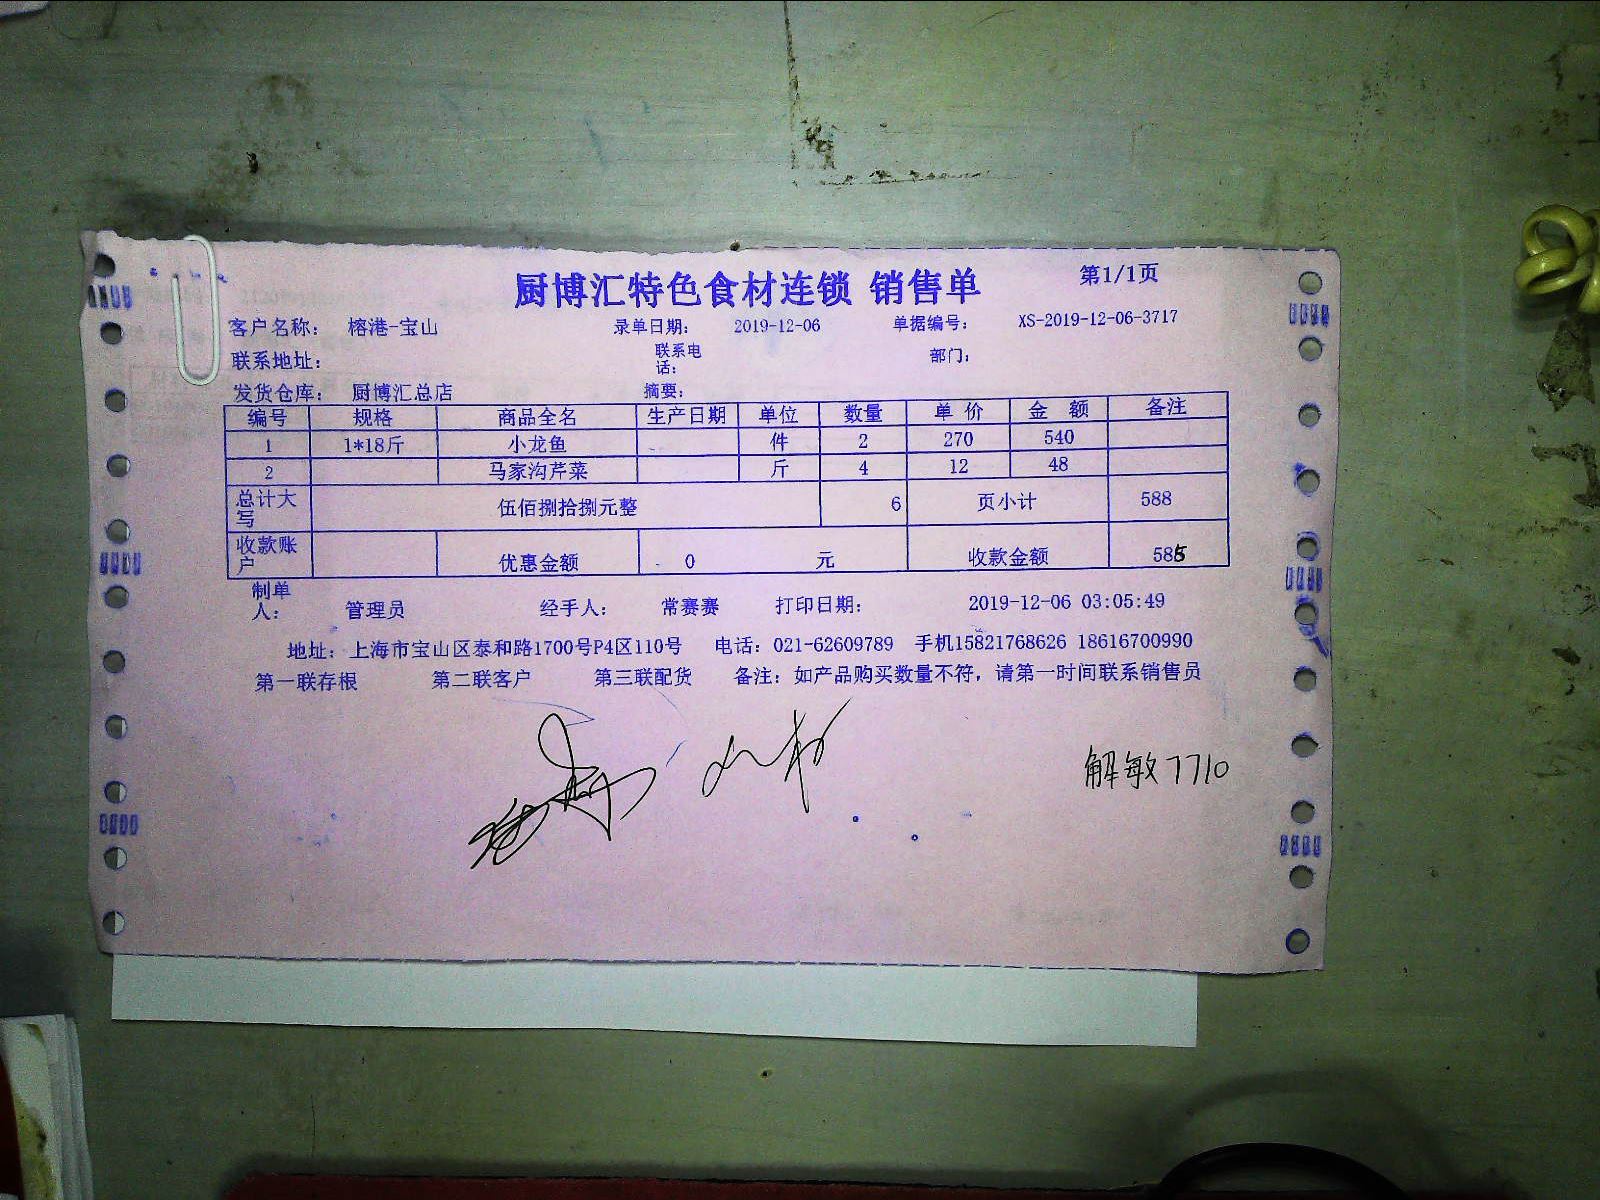 厨博汇特色食材连锁 销售单 第1/1页
客户名称: 榕港-宝山 录单日期: 2019-12-06 单据编号: XS-2019-12-06-3717
联系地址: 联系电话: 部门:
发货仓库: 厨博汇总店 摘要:
编号 规格 商品全名 生产日期 单位 数量 单 价 金 额 备注
1 1*18斤 小龙鱼 件 2 270 540
2 马家沟芹菜 斤 4 12 48
总计大写 伍佰捌拾捌元整 6 页小计 588
收款账户 优惠金额 0 元 收款金额
制单人: 管理员 经手人: 常赛赛 打印日期: 2019-12-06 03:05:49
地址: 上海市宝山区泰和路1700号P4区110号 电话: 021-62609789 手机15821768626 18616700990
第一联存根 第二联客户 第三联配货 备注: 如产品购买数量不符, 请第一时间联系销售员
解敏7710